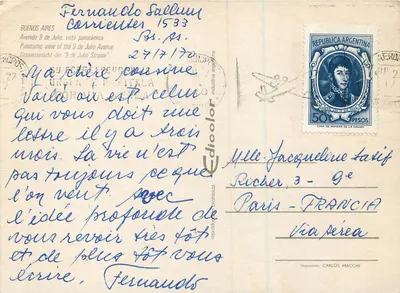 Fernando Sallum
Corrientes 1533
BUENOS AIRES
Avenida 9 de Julio, vista panorámica
Panoramic view of the 9 de Julio Avenue
Gesamtansicht der "9 de Julio Strasse"
Bs. As.
27/7/70
Ma chère cousine
Voilà ou est celui
qui vous doit une
lettre il y a trois
mois. La vie n'est
pas toujours ce que
l'on veut avec
l'idée profonde de
vous revoir très tôt
et de plus tôt vous
écrire. Fernando
Edicolor
REPUBLICA ARGENTINA
50 PESOS
Mlle. Jacqueline
Richer, 3 - 9e
Paris - FRANCIA
Via aérea
CARLOS MACCHI